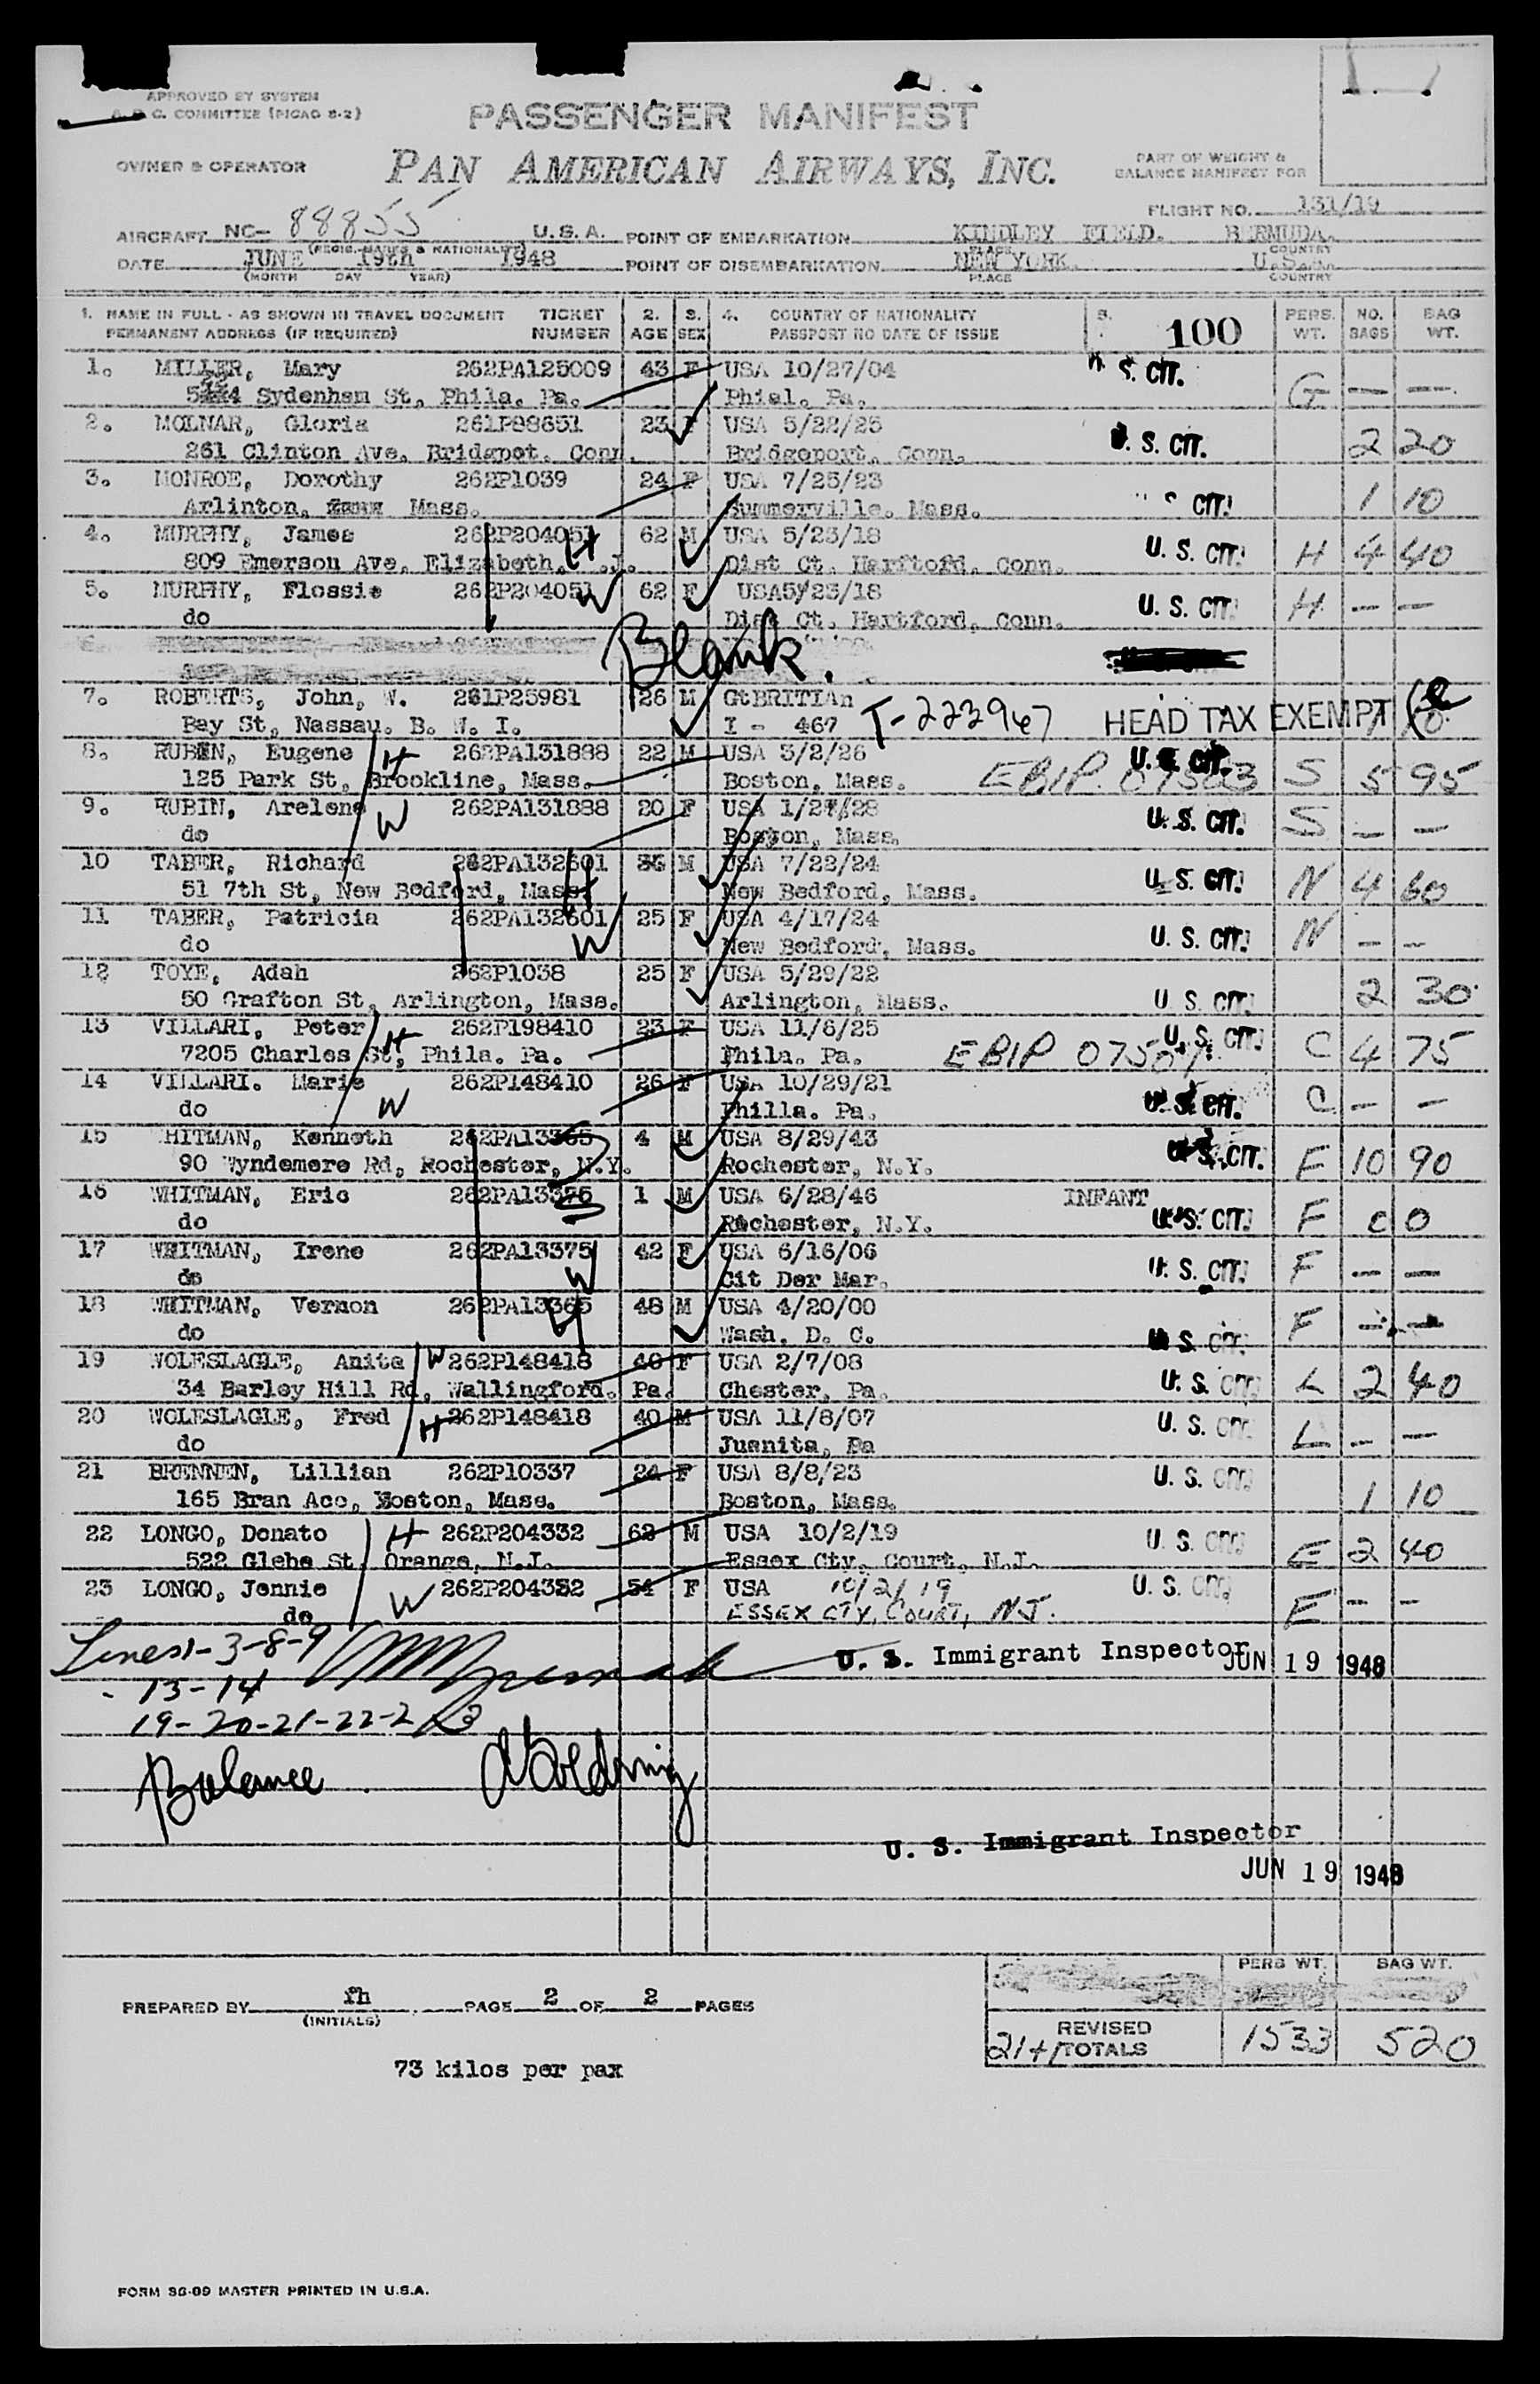 APPROVED BY SYSTEM
C. COMMITTEE (PICAO S-2)
PASSENGER MANIFEST
OWNER & OPERATOR PAN AMERICAN AIRWAYS, INC. PART OF WEIGHT &
BALANCE MANIFEST FOR
FLIGHT NO. 131/19
AIRCRAFT NC- 88855 U.S.A. POINT OF EMBARKATION KINDLEY FIELD. BERMUDA.
(REGIS. MARKS & NATIONALITY) PLACE COUNTRY
DATE JUNE 19th 1948 POINT OF DISEMBARKATION NEW YORK. U.S.A.
(MONTH DAY YEAR) PLACE COUNTRY
1. NAME IN FULL - AS SHOWN IN TRAVEL DOCUMENT TICKET 2. 3. 4. COUNTRY OF NATIONALITY 5. 100 PERS. NO. BAG
PERMANENT ADDRESS (IF REQUIRED) NUMBER AGE SEX PASSPORT NO DATE OF ISSUE WT. BAGS WT.
1. MILLER, Mary 262PA125009 43 F USA 10/27/04 S. CIT.
Sydenham St, Phila. Pa. Phial. Pa. G — —
2. MOLNAR, Gloria 261P98651 23 F USA 5/22/25 U. S. CIT.
261 Clinton Ave. Bridgpot. Conn. Bridgeport, Conn. 2 20
3. MONROE, Dorothy 262P1039 24 F USA 7/25/23 S CIT.
Arlinton, Mass. Summerville, Mass. 1 10
4. MURPHY, James 262P204051 H 62 M USA 5/23/18 U. S. CIT. H 4 40
809 Emerson Ave, Elizabeth, N.J. Dist Ct. Harftofd, Conn.
5. MURPHY, Flossie 262P204051 W 62 F USA5/23/18 U. S. CIT. H — —
do Dist Ct. Hartford, Conn.
6. Blank.
7. ROBERTS, John, W. 261P25981 26 M GtBRITIAn T-222967 HEAD TAX EXEMPT
Bay St, Nassau. B. W. I. I - 467
8. RUBEN, Eugene H 262PA131888 22 M USA 3/2/26 U. S. CIT.
125 Park St, Brookline, Mass. Boston, Mass. EBIP. S 5 95
9. RUBIN, Arelene W 262PA131888 20 F USA 1/27/28 U. S. CIT. S — —
do Boston, Mass.
10 TABER, Richard 262PA132601 M USA 7/22/24 U. S. CIT. N 4 60
51 7th St, New Bedford, Mass. H New Bedford, Mass.
11 TABER, Patricia 262PA132601 25 F USA 4/17/24 U. S. CIT. N — —
do W New Bedford, Mass.
12 TOYE, Adah 262P1038 25 F USA 5/29/22 2 30
50 Grafton St, Arlington, Mass. Arlington, Mass. U. S. CIT.
13 VILLARI, Peter H 262P198410 23 F USA 11/6/25 U. S. CIT. C 4 75
7205 Charles St, Phila. Pa. Phila. Pa. EBIP
14 VILLARI. Marie 262P148410 26 F USA 10/29/21 C — —
do W Philla. Pa. U. S. CIT.
15 WHITMAN, Kenneth 262PA13365 4 M USA 8/29/43 U. S. CIT.
90 Wyndemere Rd, Rochester, N.Y. Rochester, N.Y. F 10 90
16 WHITMAN, Eric 262PA13375 1 M USA 6/28/46 INFANT
do Rochester, N.Y. U. S. CIT. F 0 0
17 WHITMAN, Irene 262PA13375 42 F USA 6/16/06 U. S. CIT. F — —
do W Cit Der Mar.
18 WHITMAN, Vernon 262PA13365 H 48 M USA 4/20/00 F — —
do Wash. D. C. U. S. CIT.
19 WOLESLAGLE, Anita W 262P148418 40 F USA 2/7/08
34 Barley Hill Rd, Wallingford. Pa. Chester, Pa. U. S. CIT. L 2 40
20 WOLESLAGLE, Fred H 262P148418 40 M USA 11/8/07 U. S. CIT. L — —
do Juanita, Pa
21 BRENNEN, Lillian 262P10337 24 F USA 8/8/23 U. S. CIT.
165 Bran Acc, Boston, Mass. Boston, Mass. 1 10
22 LONGO, Donato H 262P204332 62 M USA 10/2/19 U. S. CIT. E 2 40
522 Glebe St, Orange, N.J. Essex Cty. Court, N.J.
23 LONGO, Jennie W 262P204332 54 F USA 10/2/19 U. S. CIT. E — —
do ESSEX CTY, COURT, NJ.
Lines 1-3-8-9 U. S. Immigrant Inspector JUN 19 1948
13-14
19-20-21-22-23
Balance
U. S. Immigrant Inspector
JUN 19 1948
PERS WT. BAG WT.
PREPARED BY fh PAGE 2 OF 2 PAGES
(INITIALS)
21+1 REVISED TOTALS 1533 520
73 kilos per pax
FORM SG-09 MASTER PRINTED IN U.S.A.